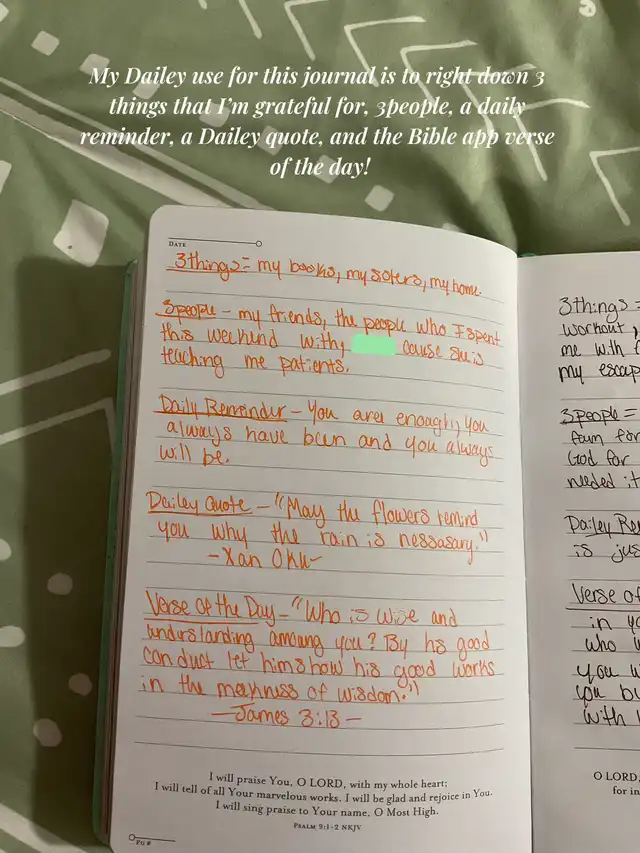 My Dailey use for this journal is to right down 3
things that I'm grateful for, 3people, a daily
reminder, a Dailey quote, and the Bible app verse
of the day!
DATE
3things= my books, my sisters, my home.
3people - my friends, the people who I spent
this weekend with, cause she is
teaching me patients.
Daily Reminder - You are enough, you
always have been and you always
will be.
Dailey Quote - "May the flowers remind
you why the rain is nessasary."
-Xan Oku-
Verse Of the Day - "Who is wise and
understanding among you? By his good
conduct let him show his good works
in the meekness of wisdom."
-James 3:13-
I will praise You, O LORD, with my whole heart;
I will tell of all Your marvelous works. I will be glad and rejoice in You.
I will sing praise to Your name, O Most High.
PSALM 9:1-2 NKJV
PG #
3things =
workout,
me with
my escap
3people =
God for
needed it
Dailey Re
is jus
Verse of
in yo
who
you w
you bu
with
O LORD,
for in